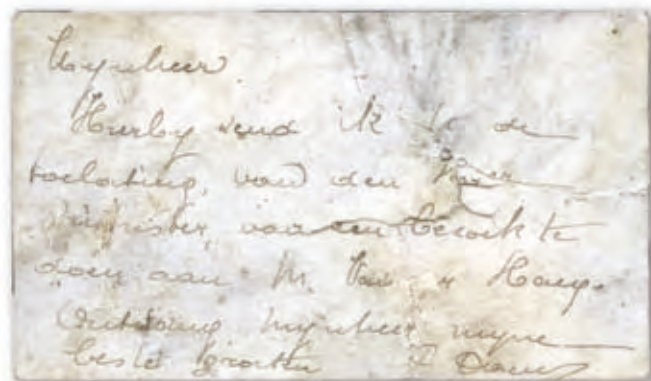 Mynheer
Hierby zend ik U de
toelating, van den Heer
Minister, voor een bezoek te
doen aan M. Van
Ontvang mynheer myne
beste groeten